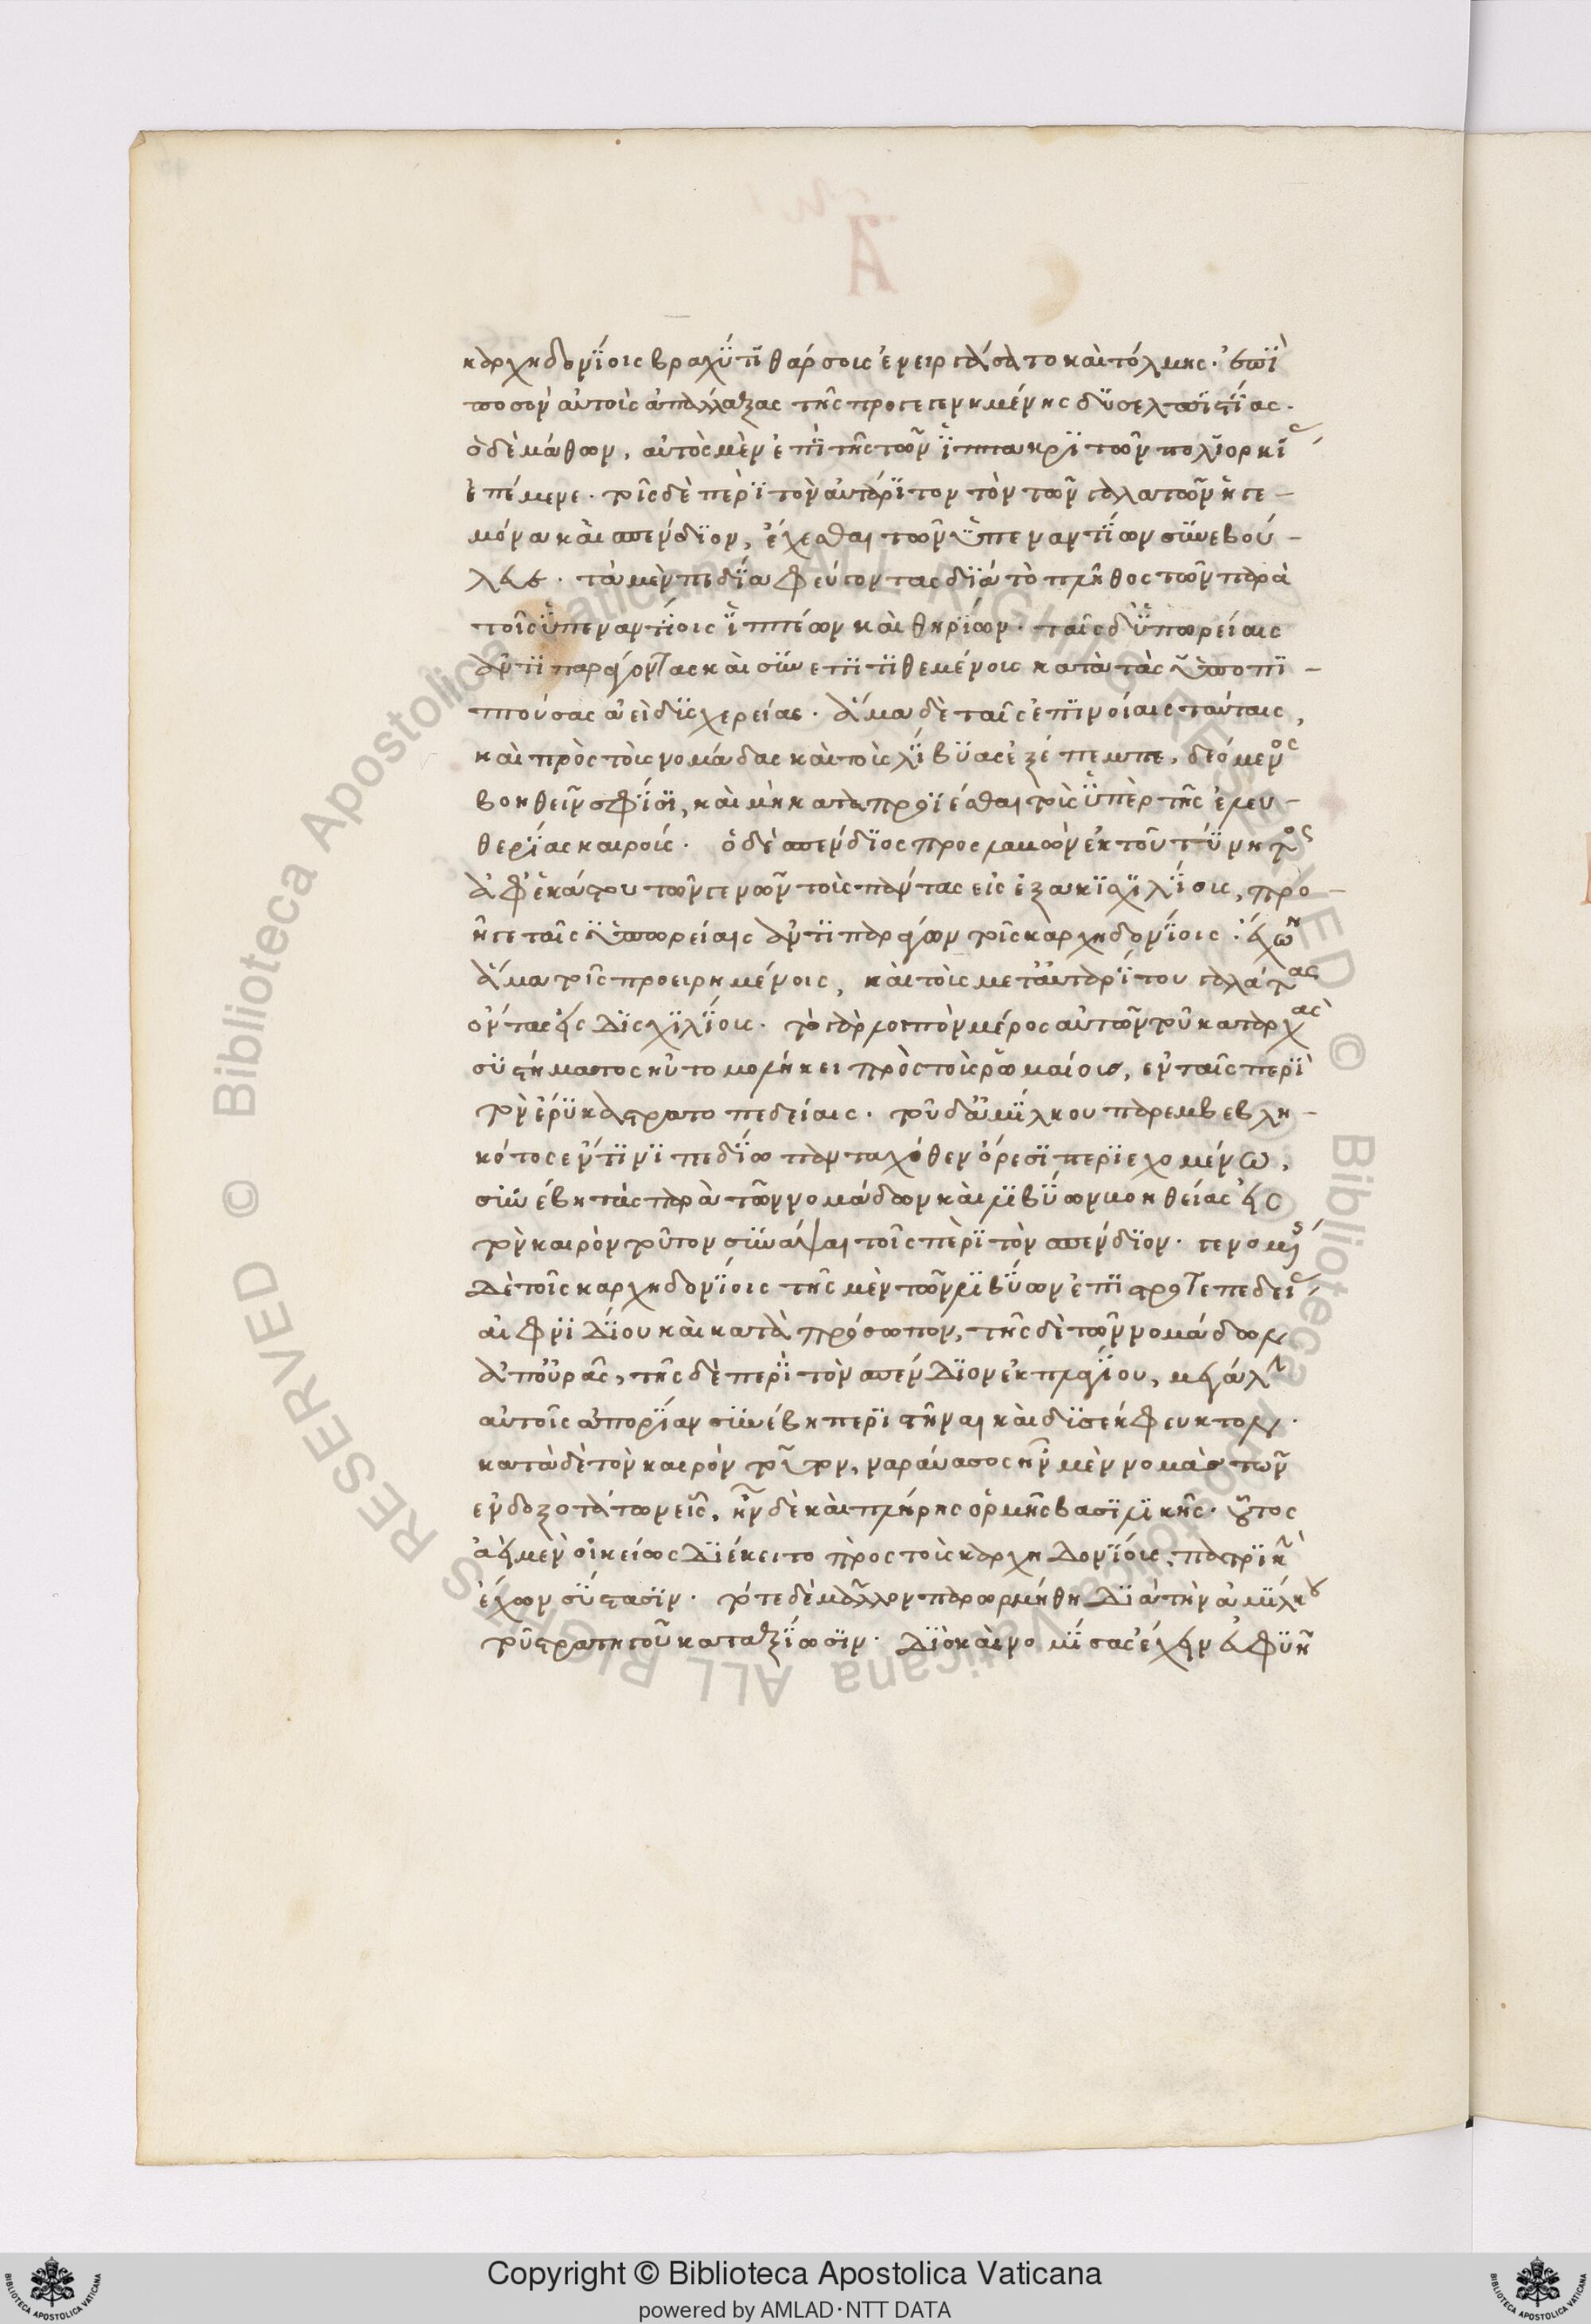 καρχηδονίοις βραχύ τι θάρσους ἐνειργάσατο καὶ τόλμης· ἐπὶ
ποσὸν αὐτοὺς ἀπαλλάξας τῆς προγεγενημένης δυσελπιστίας·
ὁ δὲ μάθων, αὐτὸς μὲν ἐπὶ τῆς τῶν ἱππακριτῶν πολιορκίας
ἐπέμενε· τοῖς δὲ περὶ τὸν αὐτάριτον τὸν τῶν γαλατῶν ἡγε-
μόνα καὶ σπένδιον, ἔχεσθαι τῶν ὑπεναντίων συνεβού-
λευε· τὰ μὲν πεδία φεύγοντας διὰ τὸ πλῆθος τῶν παρὰ
τοῖς ὑπεναντίοις ἱππέων καὶ θηρίων· ταῖς δ' ὑπωρείαις
ἀντιπαράγοντας καὶ συνεπιτιθεμένους κατὰ τὰς ὑποπι-
πτούσας ἀεὶ δυσχερείας· ἅμα δὲ ταῖς ἐπινοίαις ταύταις,
καὶ πρὸς τοὺς νομάδας καὶ τοὺς λίβυας ἐξέπεμπε, δεόμενος
βοηθεῖν σφίσι, καὶ μὴ καταπροΐεσθαι τοὺς ὑπὲρ τῆς ἐλευ-
θερίας καιρούς· ὁ δὲ σπένδιος προσλαμὼν ἐκ τοῦ τύνητος
ἀφ' ἑκάστου τῶν γενῶν τοὺς πάντας εἰς ἑξακισχιλίους, προ-
ῆγε ταῖς ὑπωρείαις ἀντιπαράγων τοῖς καρχηδονίοις· ἔχων
ἅμα τοῖς προειρημένοις, καὶ τοὺς μετ' αὐταρίτου γαλάτας
ὄντας εἰς δισχιλίους· τὸ γὰρ λοιπὸν μέρος αὐτῶν τοῦ καταρχὰς
συστήματος ηὐτομολήκει πρὸς τοὺς ῥωμαίους, ἐν ταῖς περὶ
τὸν ἔρυκα στρατοπεδείαις· τοῦ δ' ἀμίλκου παρεμβεβλη-
κότος ἐν τινι πεδίω πανταχόθεν ὄρεσι περιεχομένω,
συνέβη τὰς παρὰ τῶν νομάδων καὶ λιβύων βοηθείας εἰς
τὸν καιρὸν τοῦτον συνάψαι τοῖς περὶ τὸν σπένδιον· γενομένης
δὲ τοῖς καρχηδονίοις τῆς μὲν τῶν λιβύων ἐπιστρατοπεδείας
αἰφνιδίου καὶ κατὰ πρόσωπον, τῆς δὲ τῶν νομάδων
ἀπ' οὐρᾶς, τῆς δὲ περὶ τὸν σπένδιον ἐκ πλαγίου, μεγάλην
αὐτοῖς ἀπορίαν συνέβη περιστῆναι καὶ δυσέκφευκτον·
κατὰ δὲ τὸν καιρὸν τοῦτον, ναραύασος ἦν μὲν νομὰς τῶν
ἐνδοξοτάτων εἷς, ἦν δὲ καὶ πλήρης ὁρμῆς βασιλικῆς· οὗτος
ἀεὶ μὲν οἰκείως διέκειτο πρὸς τοὺς καρχηδονίους, πατρικὴν
ἔχων σύστασιν· τότε δὲ μᾶλλον παρωρμήθη διὰ τὴν ἀμίλκου
τοῦ στρατηγοῦ καταξίωσιν· διὸ καὶ νομίσας ἔχειν εὐφυῆ